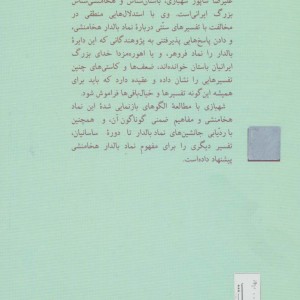 علیرضا شاپور شهبازی، باستان‌شناس و هخامنشی‌شناس
بزرگ ایرانی‌است. وی با استدلال‌هایی منطقی در
مخالفت با تفسیرهای سنّتی دربارهٔ نماد بالدار هخامنشی،
و دادن پاسخ‌هایی پذیرفتنی به پژوهندگانی که این دایرهٔ
بالدار را نماد فروهر، و یا اهوره‌مزدا خدای بزرگ
ایرانیان باستان خوانده‌اند، ضعف‌ها و کاستی‌های چنین
تفسیرهایی را نشان داده و عقیده دارد که باید برای
همیشه این‌گونه تفسیرها و خیال‌بافی‌ها فراموش شود.
شهبازی با مطالعهٔ الگوهای بازنمایی شدهٔ این نماد
هخامنشی و مفاهیم ضمنی گوناگون آن، و همچنین
با ردیابی جانشین‌های نماد بالدار تا دورهٔ ساسانیان،
تفسیر دیگری را برای مفهوم نماد بالدار هخامنشی
پیشنهاد داده‌است.